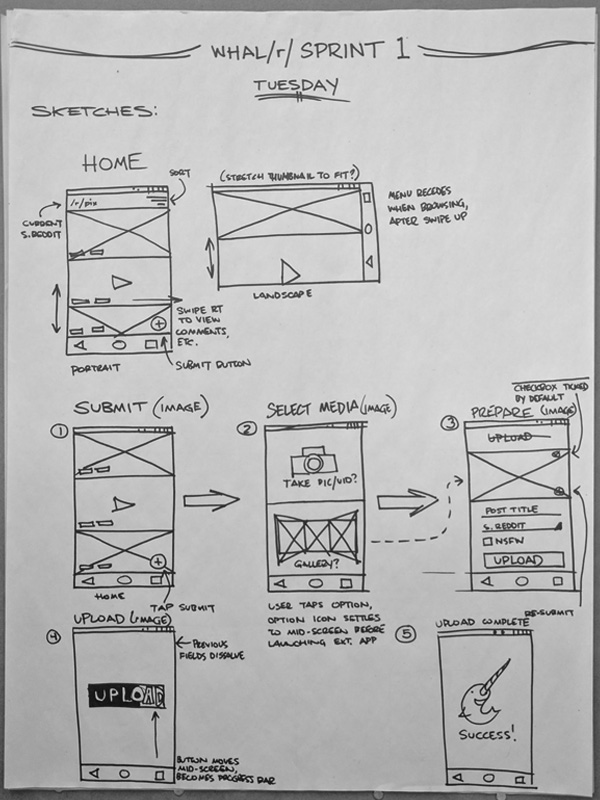 WHAL/r/ SPRINT 1
TUESDAY
SKETCHES:
HOME
SORT
/r/pix
CURRENT
S.REDDIT
SWIPE RT
TO VIEW
COMMENTS,
ETC.
SUBMIT BUTTON
PORTRAIT
(STRETCH THUMBNAIL TO FIT?)
LANDSCAPE
MENU RECEDES
WHEN BROWSING,
AFTER SWIPE UP
SUBMIT (IMAGE)
1
HOME
TAP SUBMIT
SELECT MEDIA (IMAGE)
2
TAKE PIC/VID?
GALLERY?
USER TAPS OPTION,
OPTION ICON SETTLES
TO MID-SCREEN BEFORE
LAUNCHING EXT. APP
CHECKBOX TICKED
BY DEFAULT
PREPARE (IMAGE)
3
UPLOAD
POST TITLE
S.REDDIT
NSFW
UPLOAD
RE-SUBMIT
UPLOAD (IMAGE)
4
PREVIOUS
FIELDS DISSOLVE
UPLOAD
BUTTON MOVES
MID-SCREEN,
BECOMES PROGRESS BAR
UPLOAD COMPLETE
5
SUCCESS!